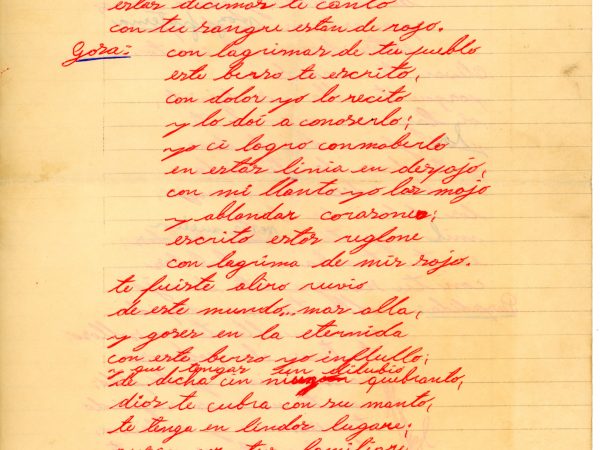 estas decimas te canto
con tu sangre estan de rojo.
Gosa: con lagrimas de tu pueblo
este berso te escrito,
con dolor yo lo recito
y lo doi a conoserlo;
yo ci logro conmoberlo
en estas linia en despojo,
con mi llanto yo las mojo
y ablandar corazone;
escrito estos reglone
con lagrima de mis rojo.
te fuiste aliro ruvio
de este mundo.. mas alla,
y goses en la eternida
con este berso yo influllo;
y que tengas un dilubio
de dicha cin quebranto,
dios te cubra con su manto,
te tenga en lindos lugare;